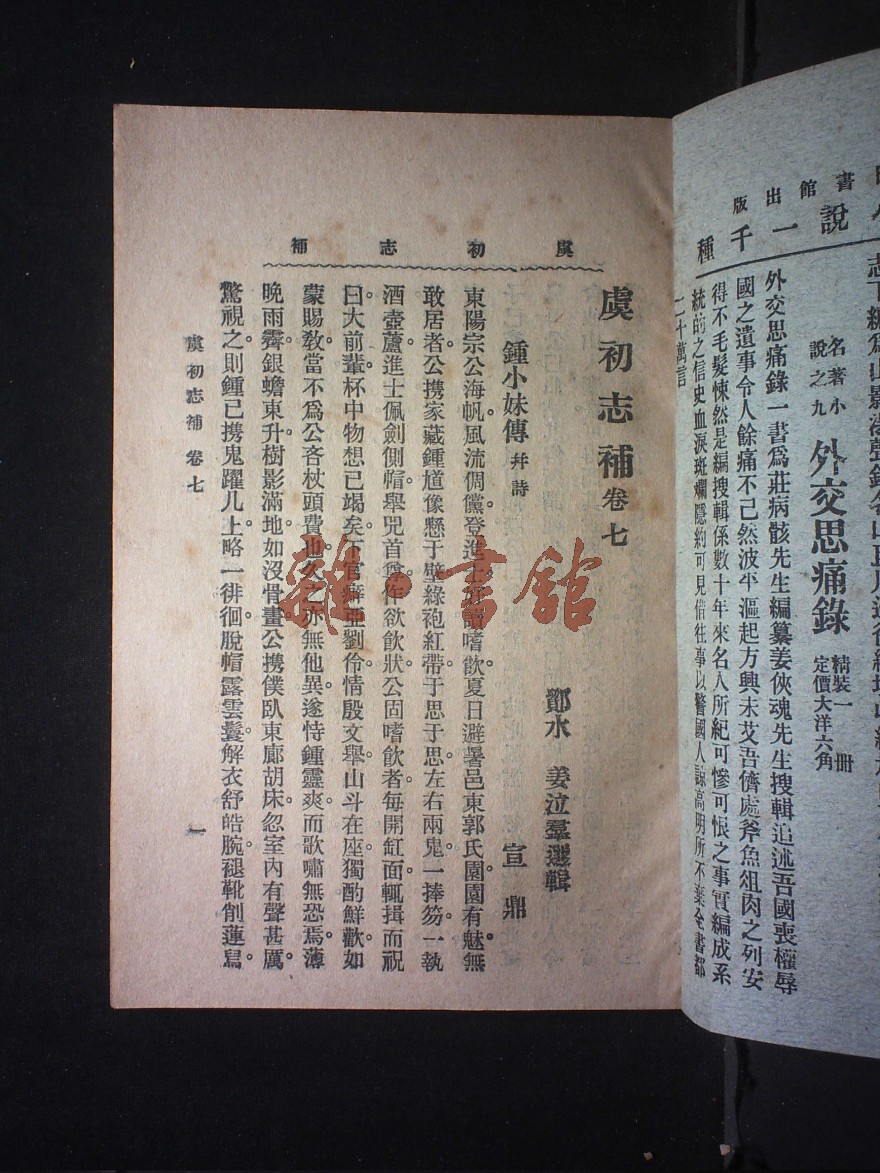 書館出版
說一千種
名著小說之九
外交思痛錄
精裝一冊
定價大洋六角
外交思痛錄一書爲莊病骸先生編纂姜俠魂先生搜輯追述吾國喪權辱
國之遺事令人餘痛不已然波平漚起方興未艾吾儕處斧魚俎肉之列安
得不毛髮悚然是編搜輯係數十年來名人所紀可慘可恨之事實編成系
統的之信史血淚斑斕隱約可見借往事以警國人諒高明所不棄全書都
二十萬言
虞初志補
虞初志補卷七
鄮水 姜泣羣選輯
鍾小妹傳 幷詩
宣鼎
東陽宗公海帆風流倜儻登進士好讀嗜飲夏日避暑邑東郭氏園園有魅無
敢居者公携家藏鍾馗像懸于壁綠袍紅帶于思于思左右兩鬼一捧笏一執
酒壺蘆進士佩劍側帽舉兕首尊作欲飲狀公固嗜飲者每開缸面輒揖而祝
曰大前輩杯中物想已竭矣下官癖亞劉伶情殷文舉山斗在座獨酌鮮歡如
蒙賜敎當不爲公吝杖頭費也久之亦無他異遂恃鍾靈爽而歌嘯無恐焉薄
晚雨霽銀蟾東升樹影滿地如沒骨畫公携僕臥東廊胡床忽室內有聲甚厲
驚視之則鍾已携鬼躍几上略一徘徊脫帽露雲鬟解衣舒皓腕褪靴削蓮舄
虞初志補 卷七
一
雜·書館